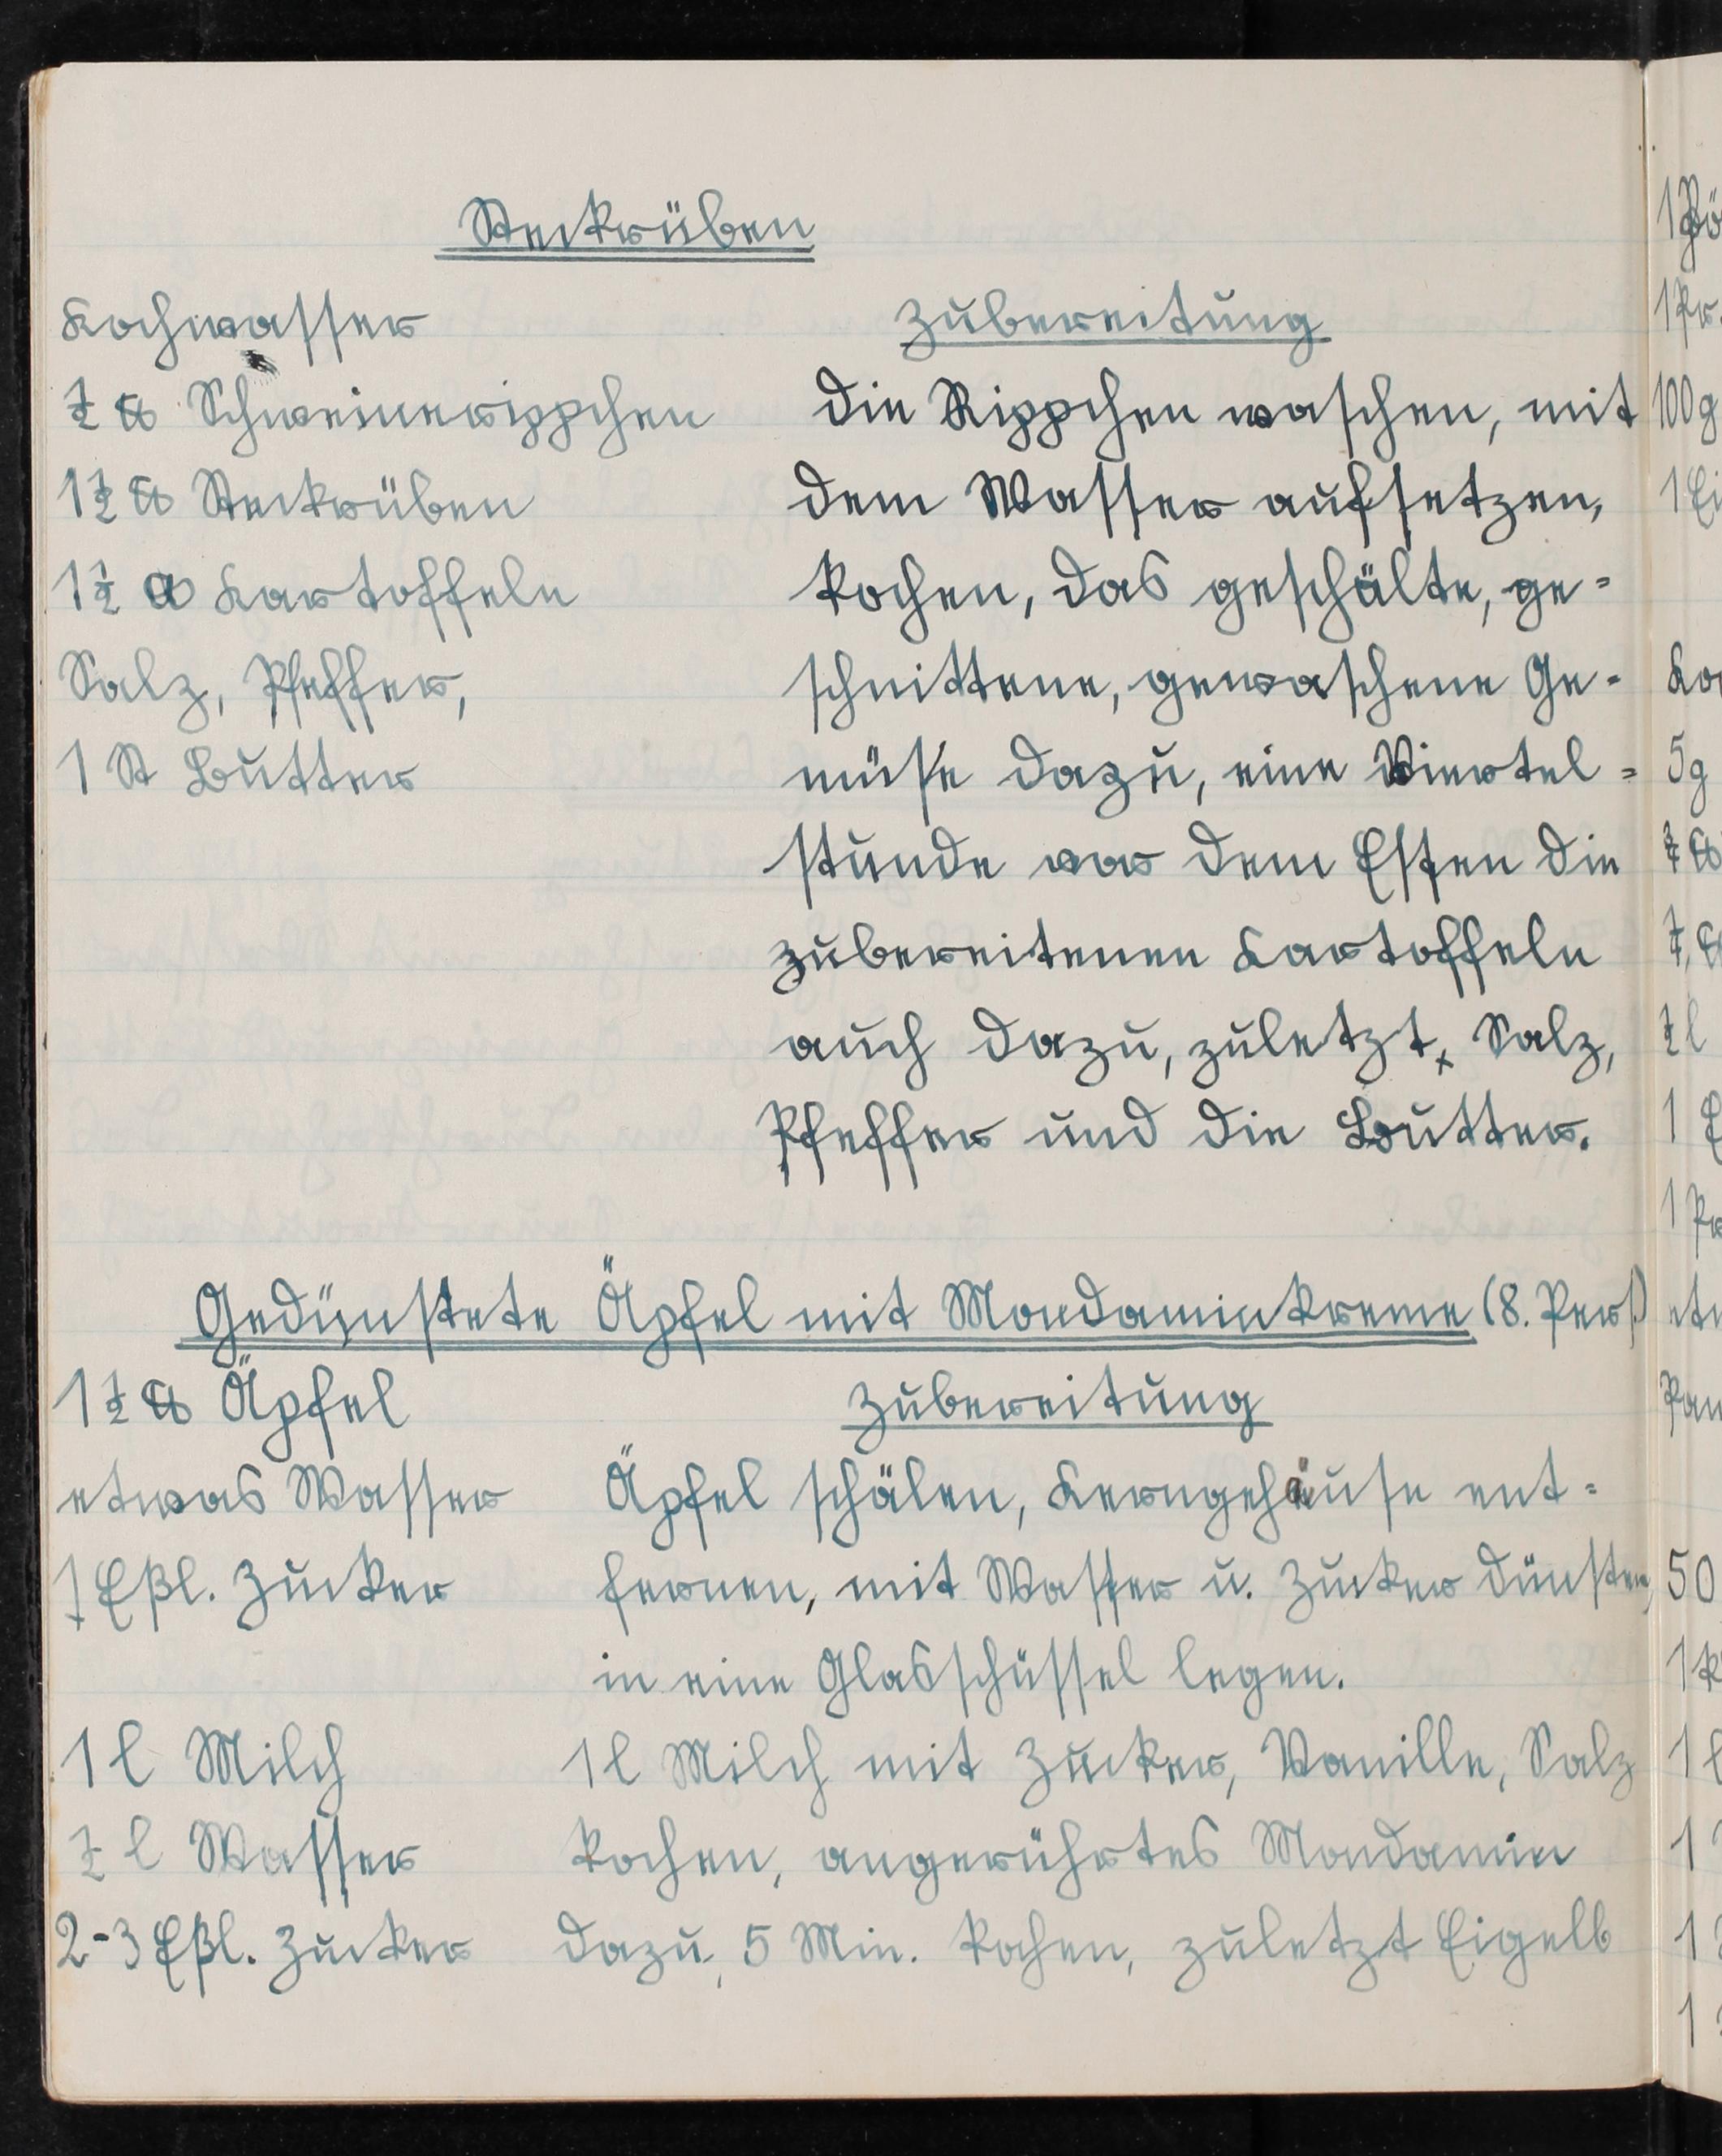 Steckrüben
Kochwasser
½ ℔ Schweinerippchen
1½ ℔ Steckrüben
1½ ℔ Kartoffeln
Salz, Pfeffer,
1 St Butter
Zubereitung
Die Rippchen waschen, mit
dem Wasser aufsetzen,
kochen, das geschälte, ge-
schnittene, gewaschene Ge-
müse dazu, eine Viertel-
stunde vor dem Essen die
zubereitenen Kartoffeln
auch dazu, zuletzt, Salz,
Pfeffer und die Butter.
Gedünstete Äpfel mit Mondaminkreme (8. Pers.)
1½ ℔ Äpfel
etwas Wasser
1 Eßl. Zucker
Zubereitung
Äpfel schälen, Kerngehäuse ent-
fernen, mit Wasser u. Zucker dünsten,
in eine Glasschüssel legen.
1 l Milch
½ l Wasser
2-3 Eßl. Zucker
1 l Milch mit Zucker, Vanille, Salz
kochen, angerührtes Mondamin
dazu, 5 Min. kochen, zuletzt Eigelb
1 Pr.
100 g
1 Ei
5 g
¾ ℔
½ l
50